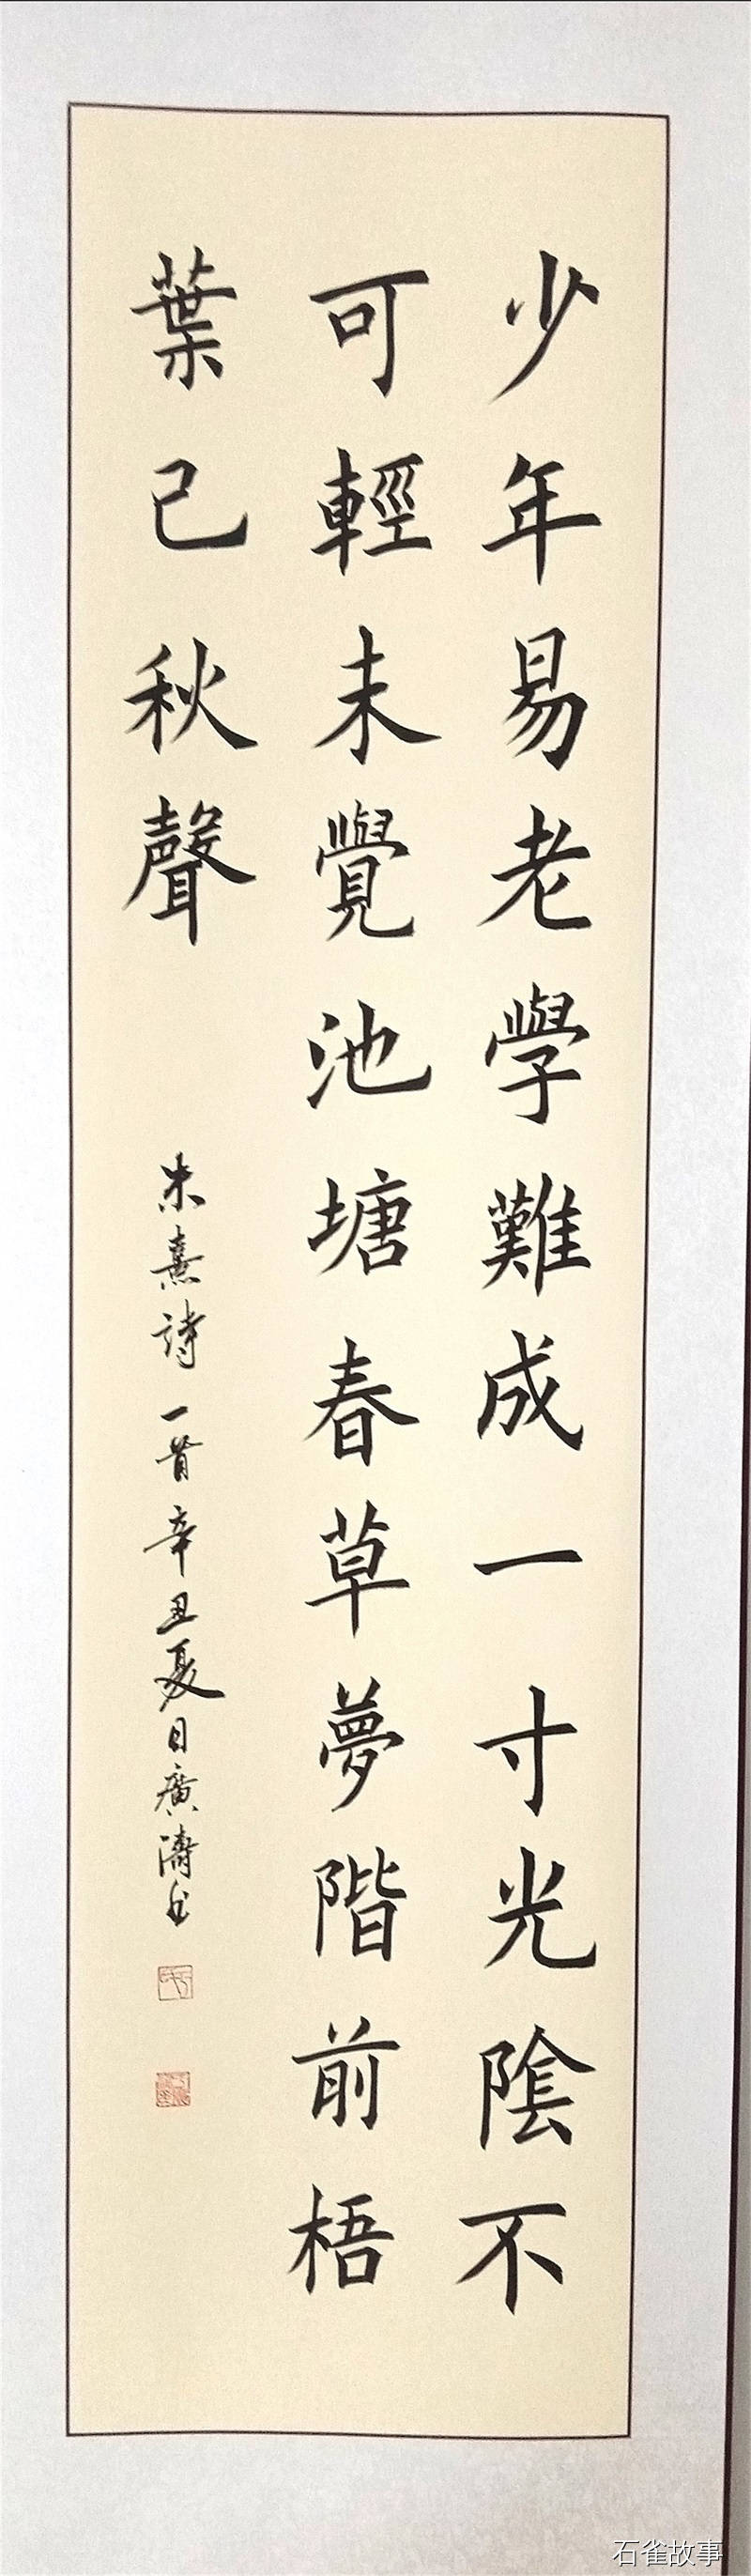 少年易老學難成一寸光陰不
可輕未覺池塘春草夢階前梧
葉已秋聲
朱熹詩一首辛丑夏日廣濤書
石雀故事